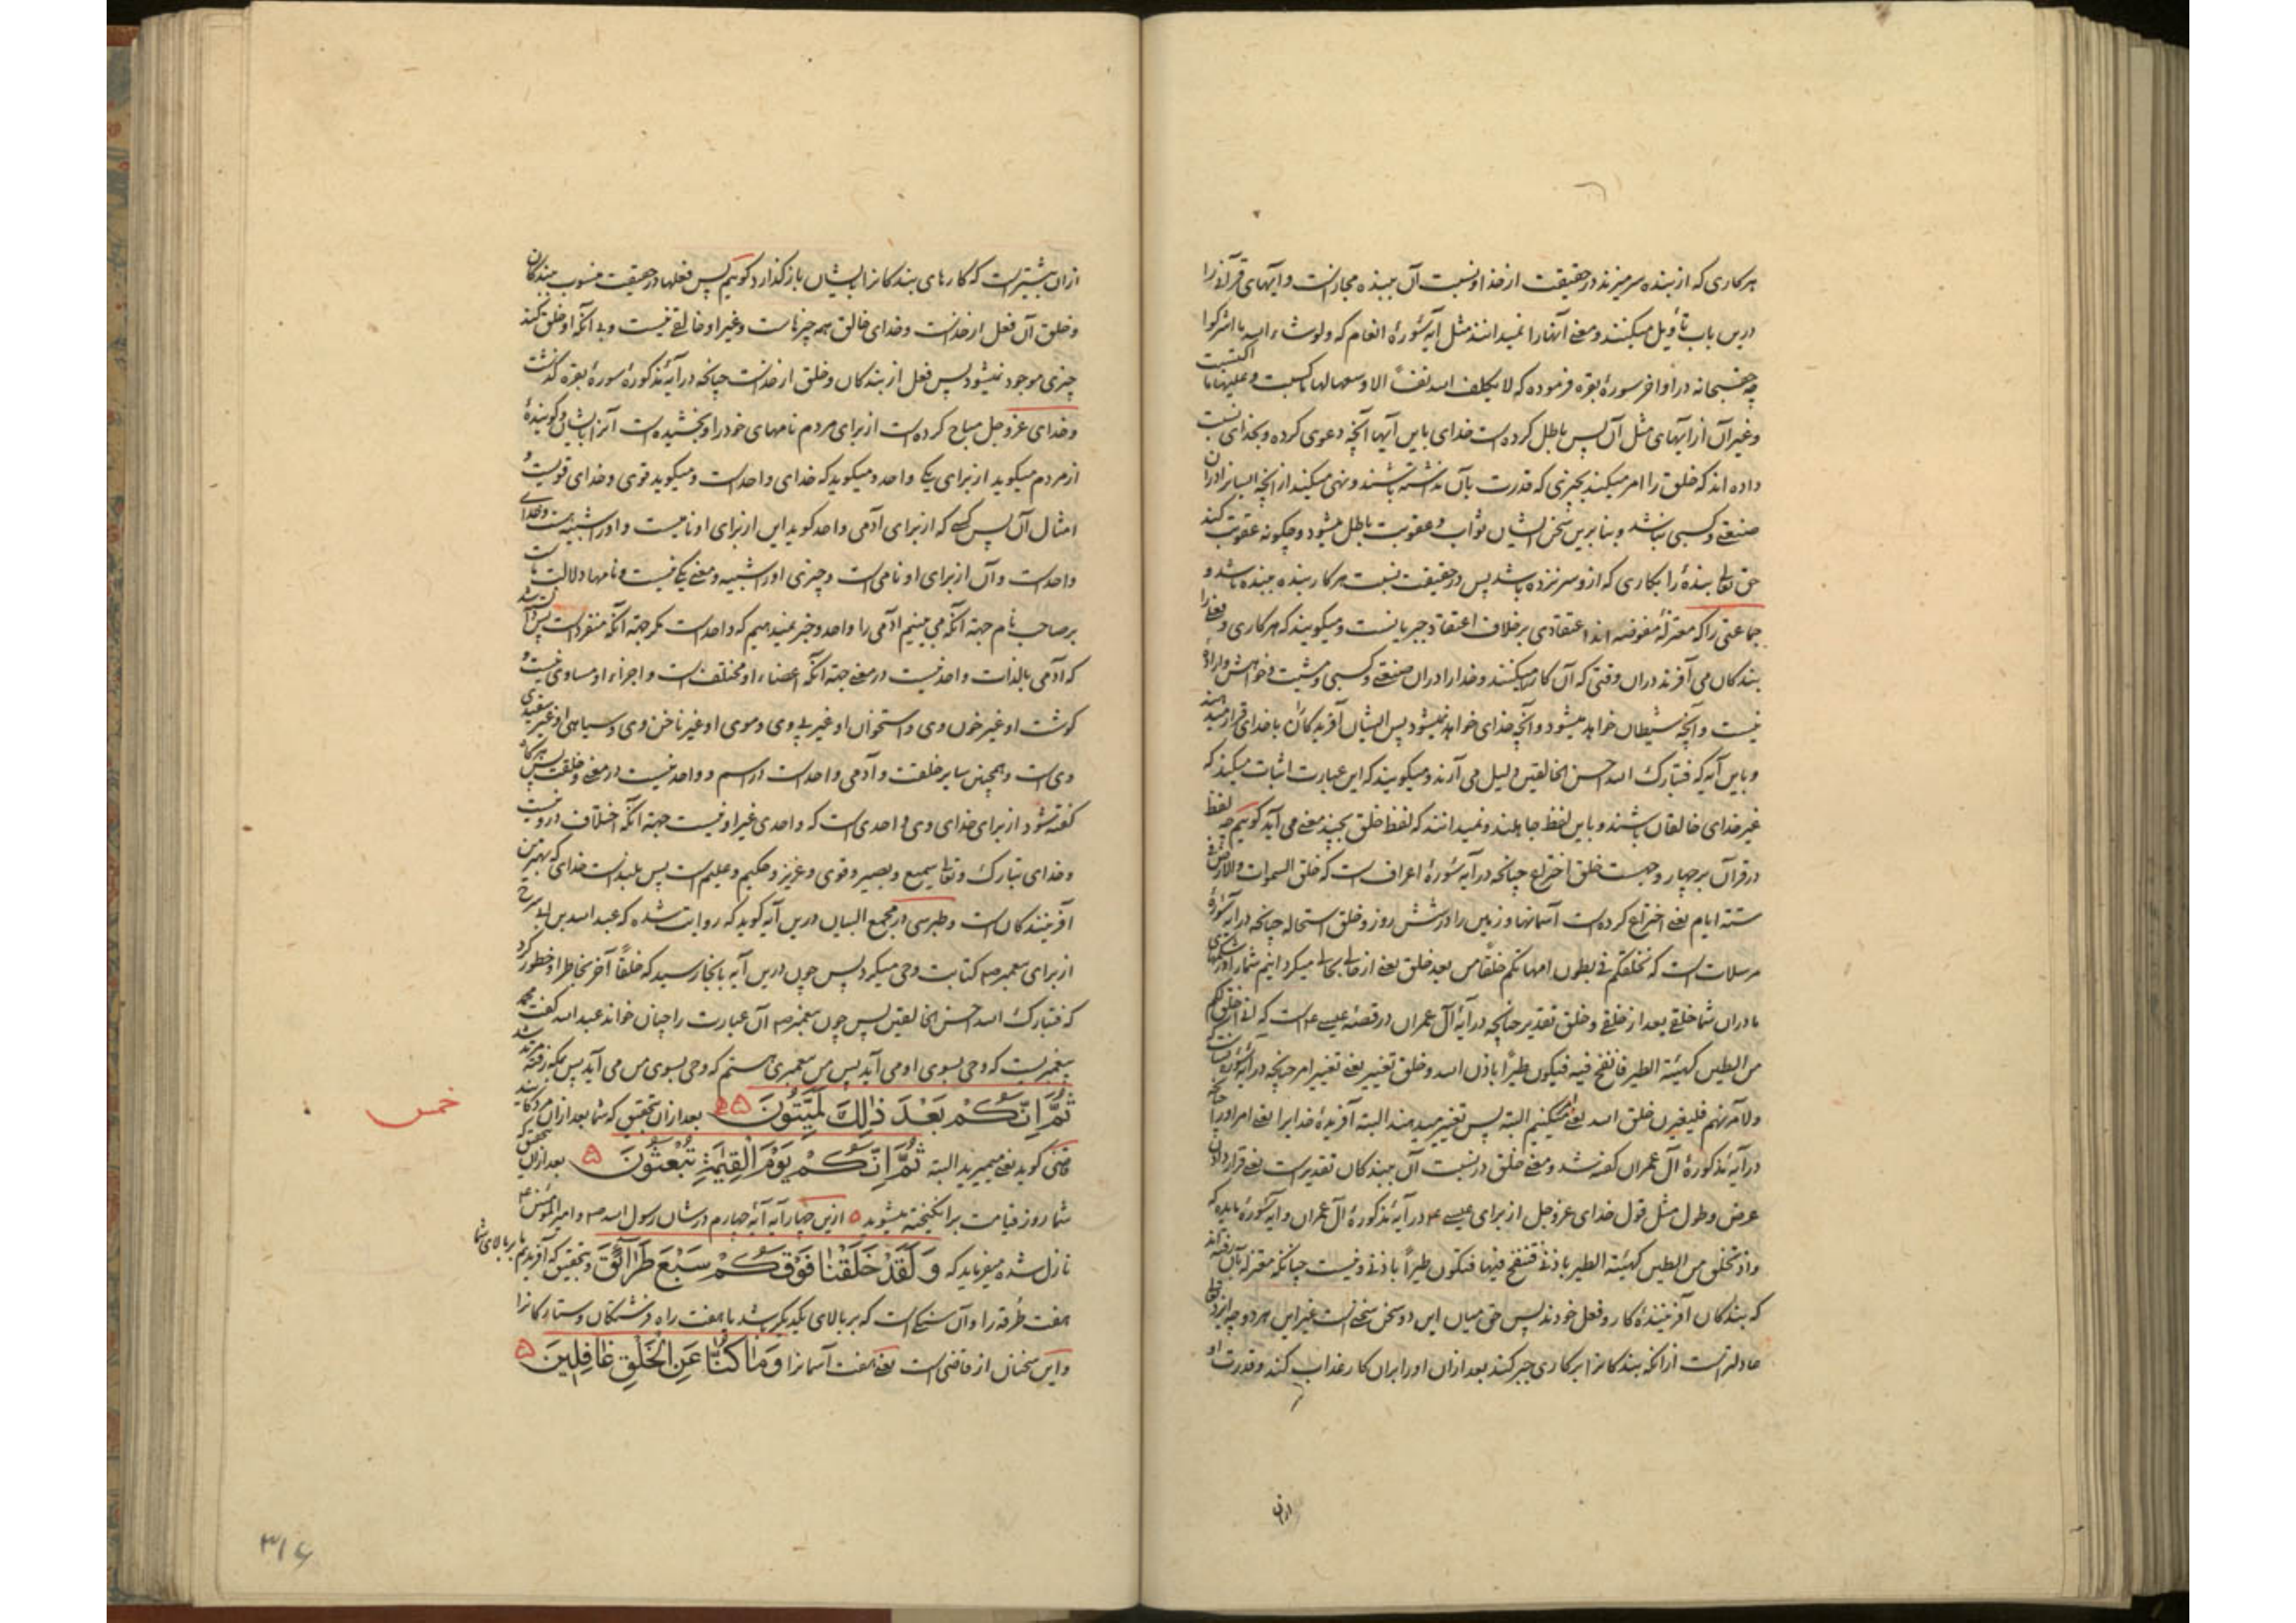 هرکاری که از بنده سر میزند در حقیقت از خدا و نسبت آن ببنده مجازست و آیهای قرآنرا
درین باب تأویل میکنند و معنی آنها را نمیدانند مثل آیهٔ سورهٔ انعام که ولوشاء الله ما اشرکوا
چه حقسبحانه در اواخر سورهٔ بقره فرموده که لا یکلف الله نفساً الا وسعها لها ما کسبت وعلیها ما اکتسبت
وغیر آن از آیهای مثل آن پس باطل کرده است خدای باین آیها آنچه دعوی کرده و بخدای نسبت
داده اند که خلق را امر میکند بچیزی که قدرت بآن نداشته باشند و نهی میکند از آنچه ایشانرا در آن
صنعتی و کسبی نباشد و بنابرین سخن ایشان ثواب و عقوبت باطل میشود و چگونه عقوبت کند
حق تعالی بندهٔ را بکاری که ازو سر نزده باشد پس در حقیقت نسبت هر کار بنده ببنده باشد و
جماعتی را که معتزلهٔ مفوضه اند اعتقادی برخلاف اعتقاد جبریانست و میکویند که هرکاری و فعلرا
بندکان می آفرند دران وقتی که آن کار میکنند و خدا را دران صنعتی و کسبی و مشیت و خواهش و ارادهٔ
نیست و آنچه شیطان خواهد میشود و آنچه خدای خواهد نمیشود پس ایشان آفریدکان با خدای قرار میدهند
و باین آیه که فتبارک الله احسن الخالقین دلیل می آرند و میکویند که این عبارت اثبات میکند که
غیر خدای خالقان باشند و باین لفظ جاهلند و نمیدانند که لفظ خلق بچند معنی می آید کوییم چه لفظ
در قرآن بر چهار وجهست خلق اختراع چنانچه در آیهٔ سورهٔ اعراف است که خلق السموات والارض فی
ستة ایام یعنی اختراع کرده است آسمانها و زمین را در شش روز و خلق استحاله چنانچه در آیهٔ سورهٔ
مرسلات است که نخلقکم فی بطون امهاتکم خلقاً من بعد خلق یعنی از حالی بحالی میکردانیم شما را در شکمهای
مادران شما خلقی بعد از خلقی و خلق تقدیر چنانچه در آیهٔ آل عمران در قصهٔ عیسی ع است که انی اخلق لکم
من الطین کهیئة الطیر فانفخ فیه فیکون طیراً باذن الله و خلق تغییر یعنی تغییر امر چنانچه در آیهٔ سورهٔ نساست که
ولآمرنهم فلیغیرن خلق الله یعنی امر میکنیم البته پس تغییر میدهند البته آفریدهٔ خدا یرا یعنی امر او را چنانچه
در آیهٔ مذکورهٔ آل عمران کفته شد و معنی خلق در نسبت آن ببندکان تقدیرست یعنی قرار دادن
عرض و طول مثل قول خدای عزوجل از برای عیسی ع در آیهٔ مذکورهٔ آل عمران و آیهٔ سورهٔ مایده که
واذ تخلق من الطین کهیئة الطیر باذنی فتنفخ فیها فتکون طیراً باذنی و نیست چنانکه معتزله بآن رفته اند
که بندکان آفرینندهٔ کار و فعل خودند پس حق میان این دو سخن سخنیست غیر این هر دو چه ایزد تعالی
عادلترست از انکه بندکانرا بر کاری جبر کند بعد ازان او را بران کار عذاب کند و قدرت او
ازان
ازان بیشترست که کارهای بندکانرا بایشان باز کذارد کوییم پس فعلها در حقیقت منسوب ببندکان
و خلق آن فعل از خداست و خدای خالق همه چیزهاست و غیر او خالقی نیست و بی آنکه او خلق کند
چیزی موجود نمیشود پس فعل از بندکان و خلق از خداست چنانچه در آیهٔ مذکورهٔ سورهٔ بقره کذشت
و خدای عزوجل مباح کرده است از برای مردم نامهای خود را و بخشیده است آنرا بایشان و کویندهٔ
از مردم میکوید از برای یکی واحد و میکوید که خدای واحد است و میکوید قوی و خدای قویست و
امثال آن پس کسی که از برای آدمی واحد کوید این از برای او نامیست و او را شبیه هست و خدای
واحد است و آن از برای او نامی است و چیزی او را شبیه و معنی یکی نیست و نامها دلالت است
بر صاحب نام جهة آنکه می بینیم آدمی را واحد و خبر نمیدهیم که واحد است مکر جهة آنکه منفرد است پس
که آدمی بالذات واحد نیست در معنی جهة آنکه اعضاء او مختلف است و اجزاء او مساوی نیست و
کوشت او غیر خون وی و استخوان او غیر پی وی و موی او غیر ناخن وی و سیاهی او غیر سفیدی
وی است و همچنین سایر خلقت و آدمی واحد است در اسم و واحد نیست در معنی و خلقت پس هرکاه
کفته شود از برای خدای وی واحدی است که واحدی غیر او نیست جهة آنکه اختلاف درو نیست
و خدای تبارک و تعالی سمیع و بصیر و قوی و عزیز و حکیم و علیم است پس بلندست خدای که بهترین
آفرینندکان است و طبرسی در مجمع البیان درین آیه کوید که روایت شده که عبدالله بن ابی سرح
از برای پیغمبر ص کتابت وحی میکرد پس چون درین آیه باینجا رسید که خلقاً آخر بخاطر او خطور کرد
که فتبارک الله احسن الخالقین پس چون پیغمبر ص آن عبارت را چنان خواند عبدالله کفت محمد
پیغمبریست که وحی بسوی او می آید پس من پیغمبری هستم که وحی بسوی من می آید پس بمکه رفته مرتد شد
ثُمَّ اِنَّکُمْ بَعْدَ ذٰلِکَ لَمَیِّتُونَ بعد ازان تحقیق که شما بعد ازان مردکانید
قاضی کوید یعنی میمیرید البته ثُمَّ اِنَّکُمْ یَوْمَ الْقِیٰمَةِ تُبْعَثُونَ بعد ازان تحقیق که
شما روز قیامت برانکیخته میشوید ازین چهار آیه آیهٔ چهارم در شان رسول الله ص و امیرالمؤمنین ع
نازل شده میفرماید که وَلَقَدْ خَلَقْنٰا فَوْقَکُمْ سَبْعَ طَرٰآئِقَ و بتحقیق که آفریدیم ما بر بالای شما
هفت طُرقه را و آن سنکی است که بر بالای یکدیکر باشد یا هفت راه فرشتکان و ستارکانرا
و این سخنان از قاضی است یعنی هفت آسمانرا وَمٰا کُنّٰا عَنِ الْخَلْقِ غٰافِلِینَ
خمس
۳۱۶